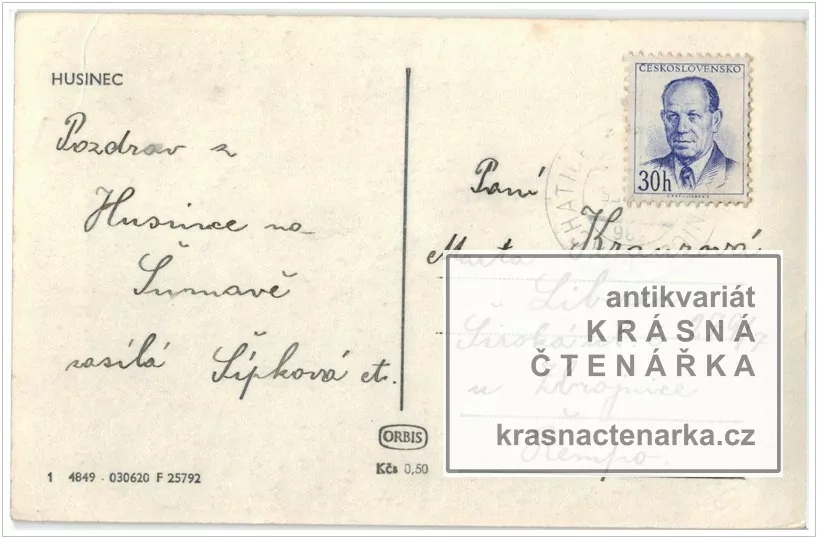 HUSINEC
Pozdrav z
Husince na
Šumavě
zasílá Šípková et.
ČESKOSLOVENSKO
30h
Paní
Krauzová
Lib
u Zbrojnice
antikvariát
KRÁSNÁ
ČTENÁŘKA
krasnactenarka.cz
ORBIS
Kčs 0,50
1 4849 - 030620 F 25792